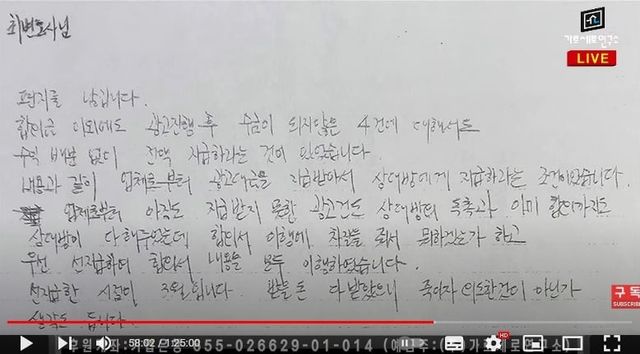 최변호사님
가로세로연구소
LIVE
편지를 남깁니다.
합의금 이외에도 광고진행 후 수금이 되지않은 4건에 대해서도
수익 배분 없이 전액 지급하라는 것이 있었습니다.
내용과 같이 업체로부터 광고대금을 지급받아서 상대방에게 지급하라는 조건이었습니다.
업체로부터 아직도 지급받지 못한 광고건도 상대방의 독촉과 이미 합의까지도
상대방이 다 해주었는데 합의서 이행에 차질을 줘서 뭐하겠는가 하고
우선 선지급하여 합의서 내용을 모두 이행하였습니다.
선지급한 시점이 3월입니다 받을 돈 다 받았으니 죽이자 의도한건이 아닌가
생각도 듭니다.
구독
SUBSCRIBE
58:02 / 1:25:00
HD
후원계좌: 기업은행 055-026629-01-014 (예금주:(주)가로세로연구소)